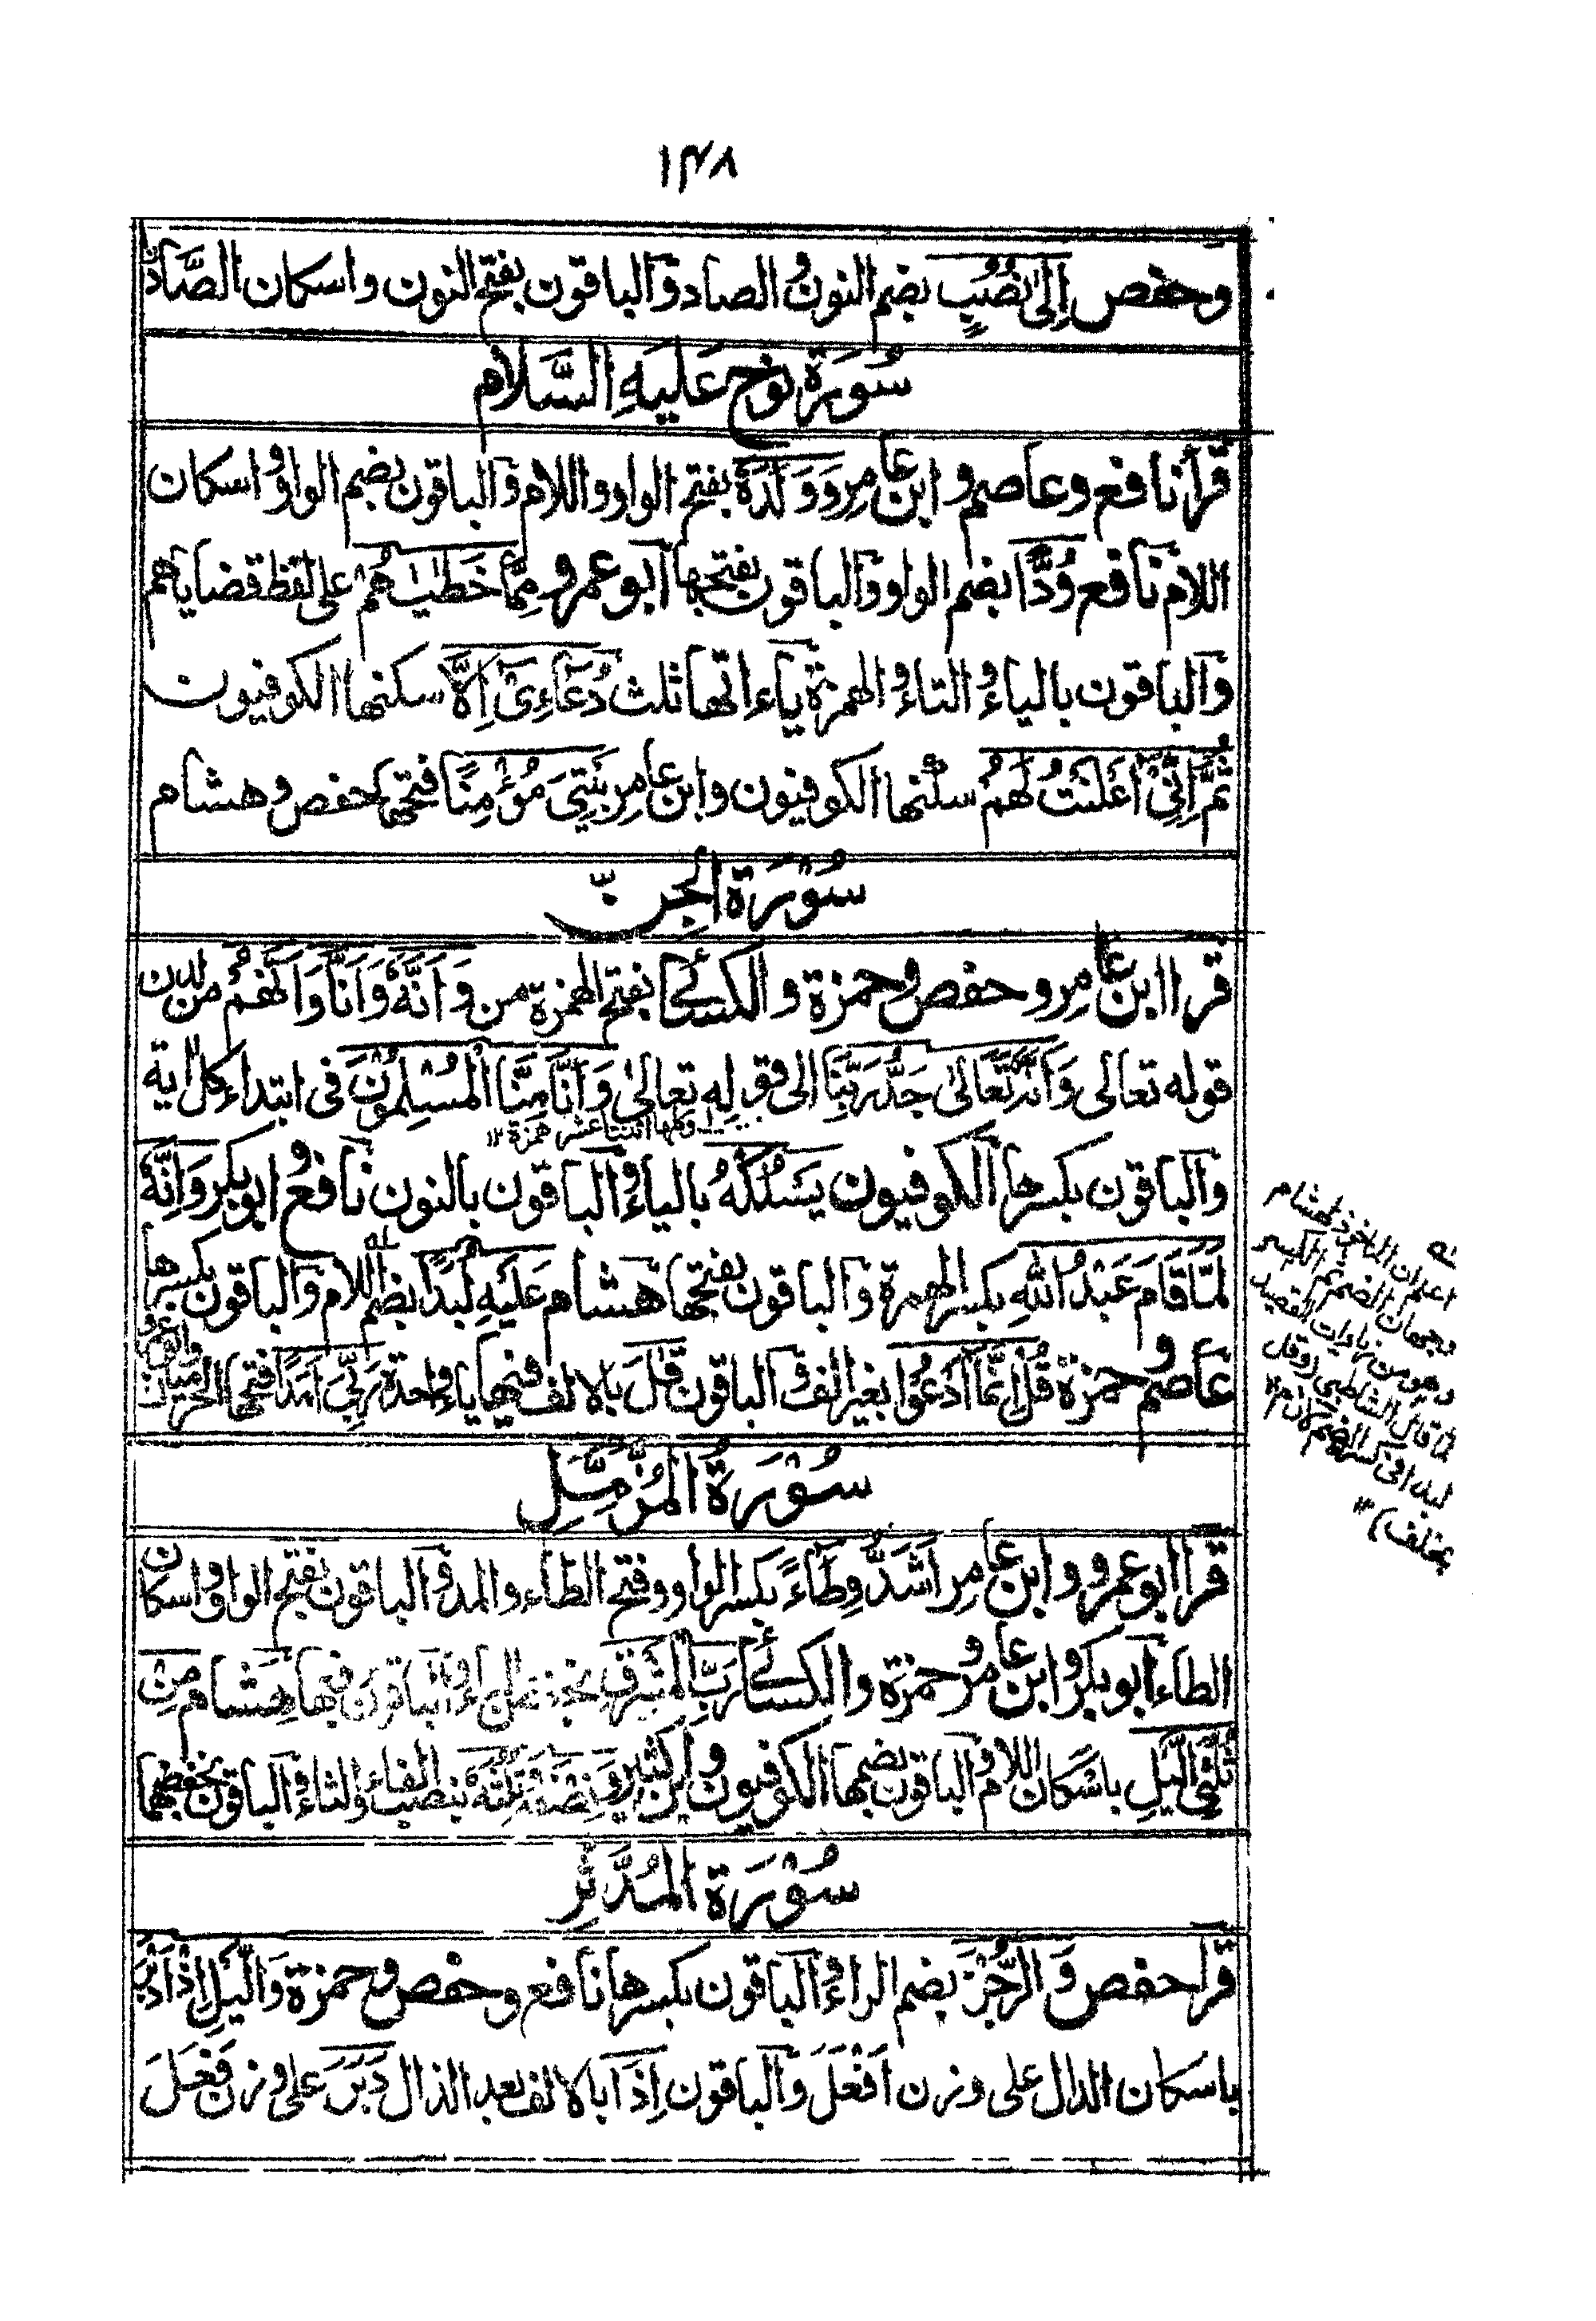 ۱۴۸
وحفص اِلٰى نُصُبٍ بضم النون والصاد والباقون بفتح النون واسكان الصَّاد
سُورَة نوح عَلَيهِ السَّلام
قرأ نافع وعاصم وابن عامر وَوَلَدُهٗ بفتح الواو واللام والباقون بضم الواو واسكان
اللام نافع وُدًّا بضم الواو والباقون بفتحها ابو عمرو مِمَّا خَطٰيٰهُمْ على لفظ قضاياهم
والباقون بالياء والتاء والهمزة ياءاتها ثلث دُعَاءِىْ اِلَّا سكنها الكوفيون
ثُمَّ اِنِّىْ اَعْلَنْتُ لَهُمْ سكنها الكوفيون وابن عامر بَيْتِىَ مُؤْمِنًا فتحها حفص وهشام
سُوْرَة الجِنّ
قرا ابن عامر وحفص وحمزة والكسائى بفتح الهمزة من وَاَنَّهٗ وَاَنَّا وَاَنَّهُمْ من لدن
قوله تعالى وَاَنَّهٗ تَعَالٰى جَدُّ رَبِّنَا الى قوله تعالى وَاَنَّا مِنَّا الْمُسْلِمُوْنَ فى ابتداء كل اية
وكلها اثنتا عشر همزة ۱۲
والباقون بكسرها الكوفيون يَسْلُكْهُ بالياء والباقون بالنون نافع وابو بكر وَاِنَّهٗ
لَمَّا قَامَ عَبْدُ اللهِ بكسر الهمزة والباقون بفتحها هشام عَلَيْهِ لُبَدًا بضم اللام والباقون بكسرها
عاصم وحمزة قُلْ اِنَّمَا اَدْعُوْا بغير الف والباقون قَالَ بالالف فيها ياء واحدة رَبِّىْ اَمَدًا فتحها الحرميان وابو عمرو
له
اعلم ان الماخوذ لهشام
وجهان الضم ثم الكسر
وهو من زيادات القصيد
لما قال الشاطبى (وقل
لبدا فى كسره الضم لازم
بخلف) ۱۲
سُوْرَةُ المُزَّمِّلِ
قرا ابو عمرو وابن عامر اَشَدُّ وِطَاءً بكسر الواو وفتح الطاء والمد والباقون بفتح الواو واسكان
الطاء ابو بكر وابن عامر وحمزة والكسائى رَبِّ الْمَشْرِقِ بخفض الباء والباقون برفعها هشام مِنْ
ثُلْثَىِ الَّيْلِ باسكان اللام والباقون بضمها الكوفيون وابن كثير وَنِصْفَهٗ وَثُلُثَهٗ بنصب الفاء والثاء والباقون بخفضهما
سُوْرَة المُدَّثِّرِ
قرا حفص وَالرُّجْزَ بضم الراء والباقون بكسرها نافع وحفص وحمزة وَالَّيْلِ اِذْ اَدْبَرَ
باسكان الدال على وزن اَفْعَلَ والباقون اِذَا بالالف بعد الذال دَبَرَ على وزن فَعَلَ